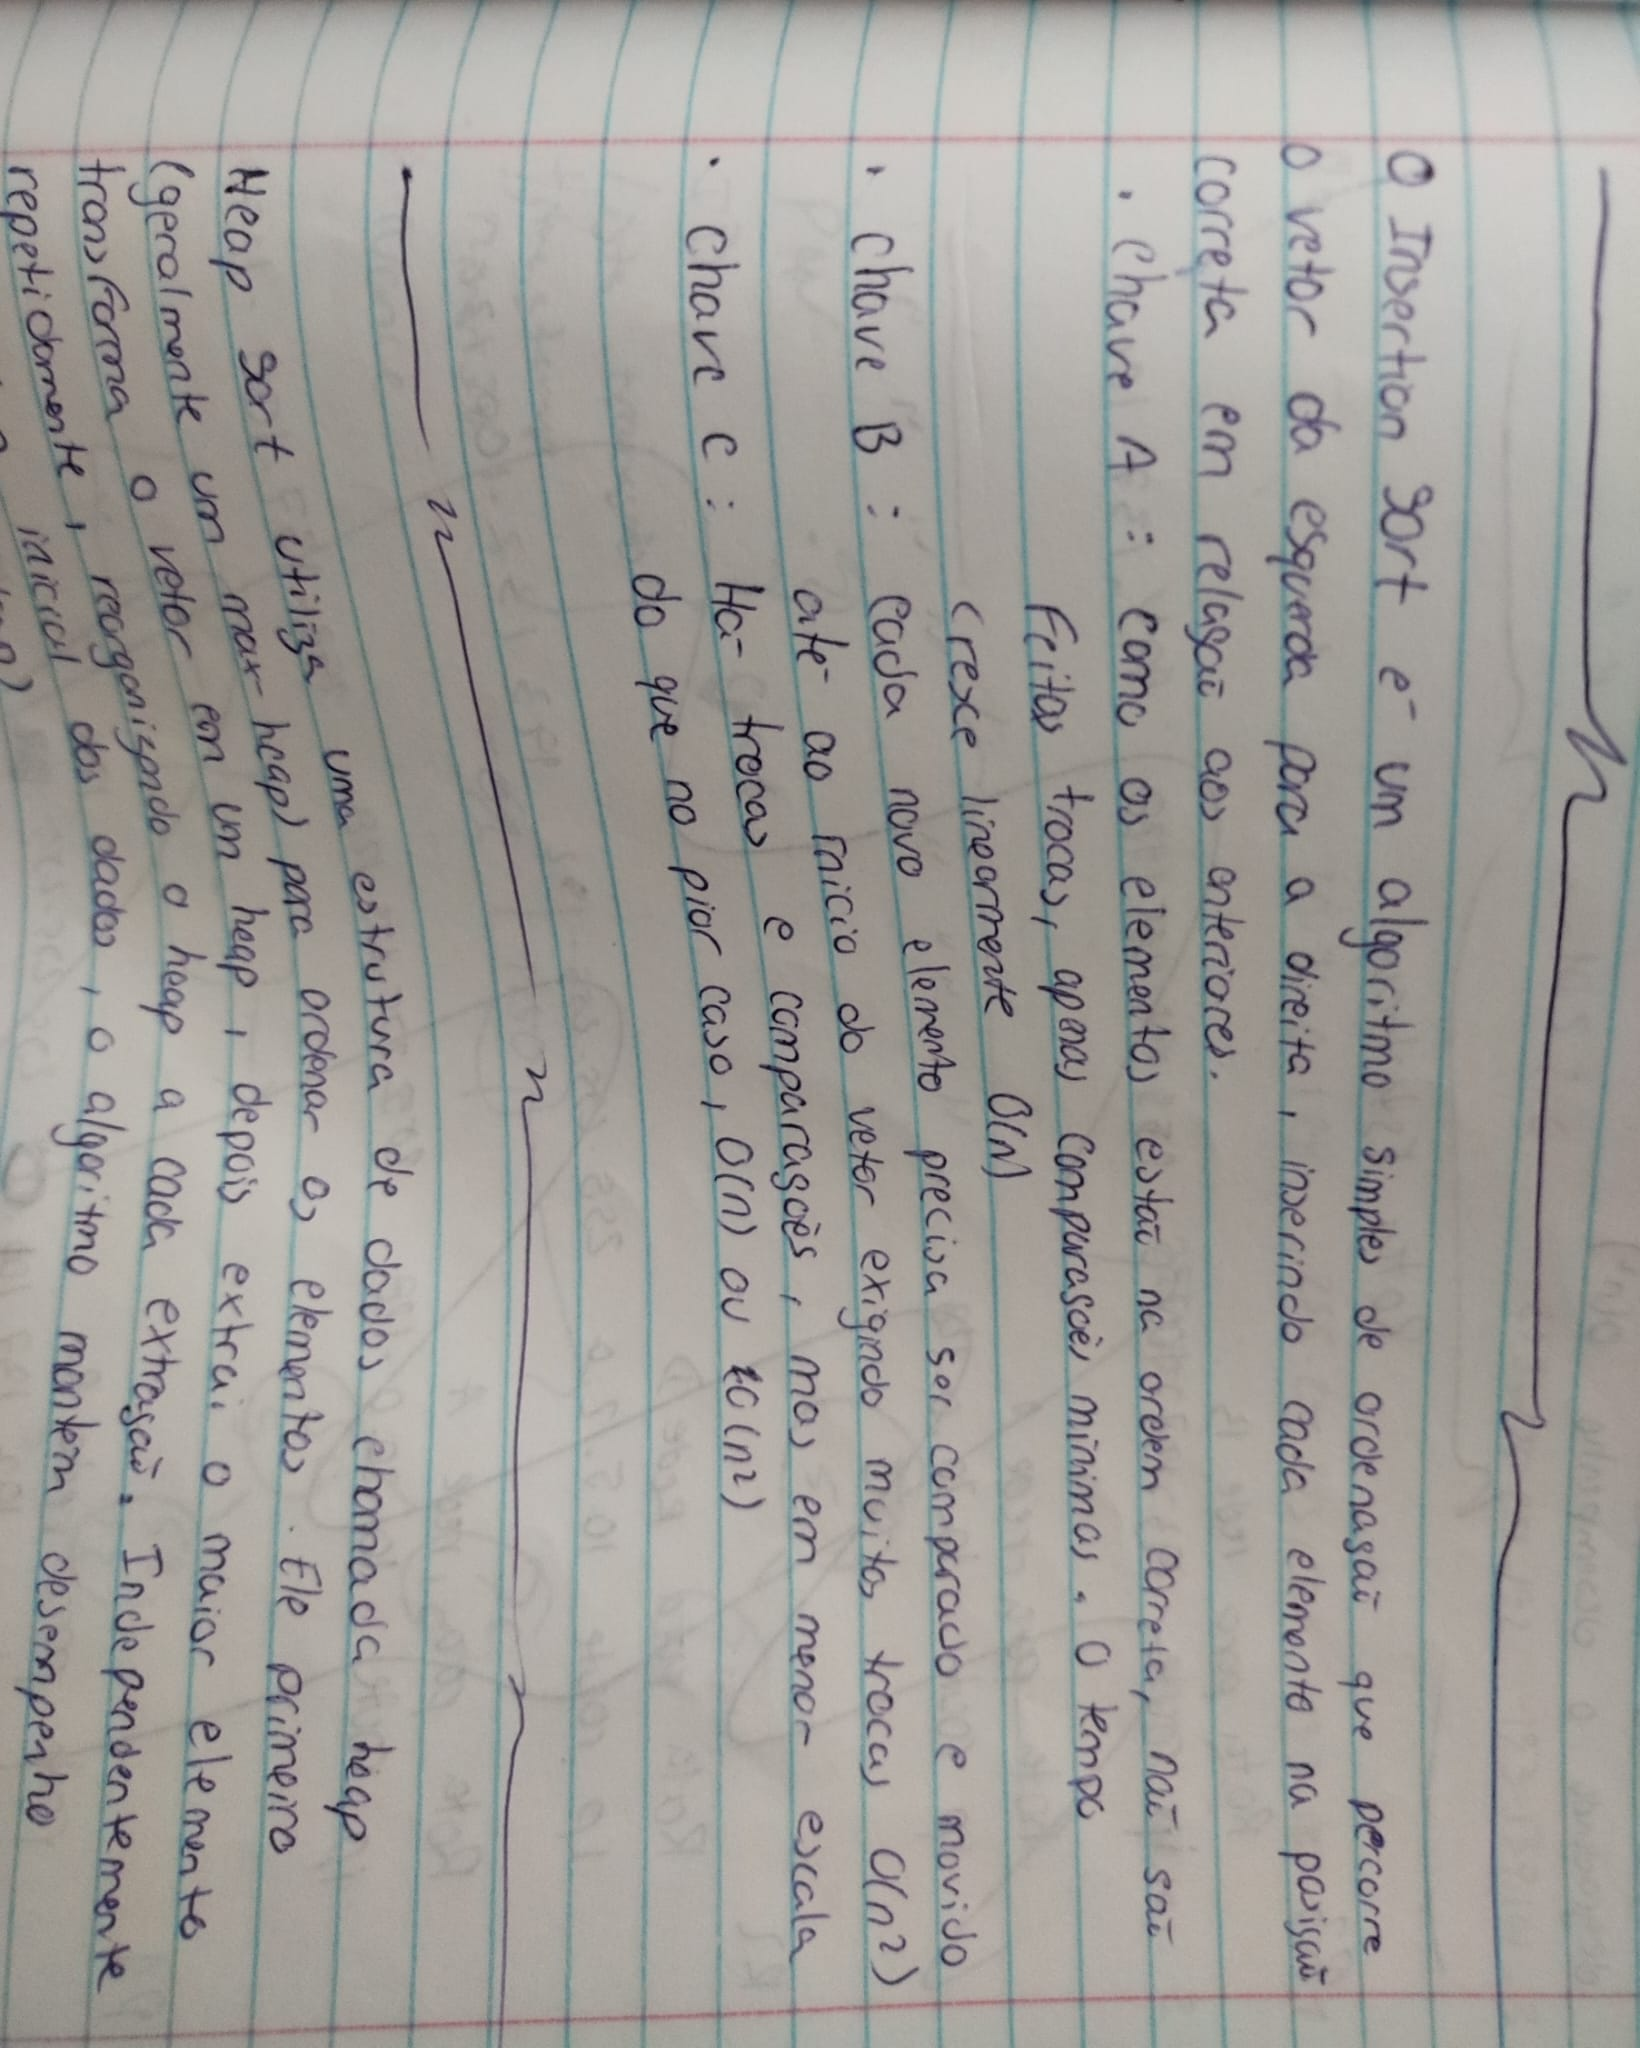 O Insertion Sort é um algoritmo simples de ordenação que percorre
o vetor da esquerda para a direita, inserindo cada elemento na posição
correta em relação aos anteriores.
· Chave A : Como os elementos estão na ordem correta, não são
feitas trocas, apenas comparações mínimas. O tempo
cresce linearmente O(N)
· Chave B : Cada novo elemento precisa ser comparado e movido
até ao início do vetor exigindo muitas trocas O(n²)
· Chave C : Há trocas e comparações, mas em menor escala
do que no pior caso, O(n) ou O(n²)
Heap Sort utiliza uma estrutura de dados chamada heap
(geralmente um max-heap) para ordenar os elementos. Ele primeiro
transforma o vetor em um heap, depois extrai o maior elemento
repetidamente, reorganizando o heap a cada extração. Independentemente
inicial dos dados, o algoritmo mantém desempenho